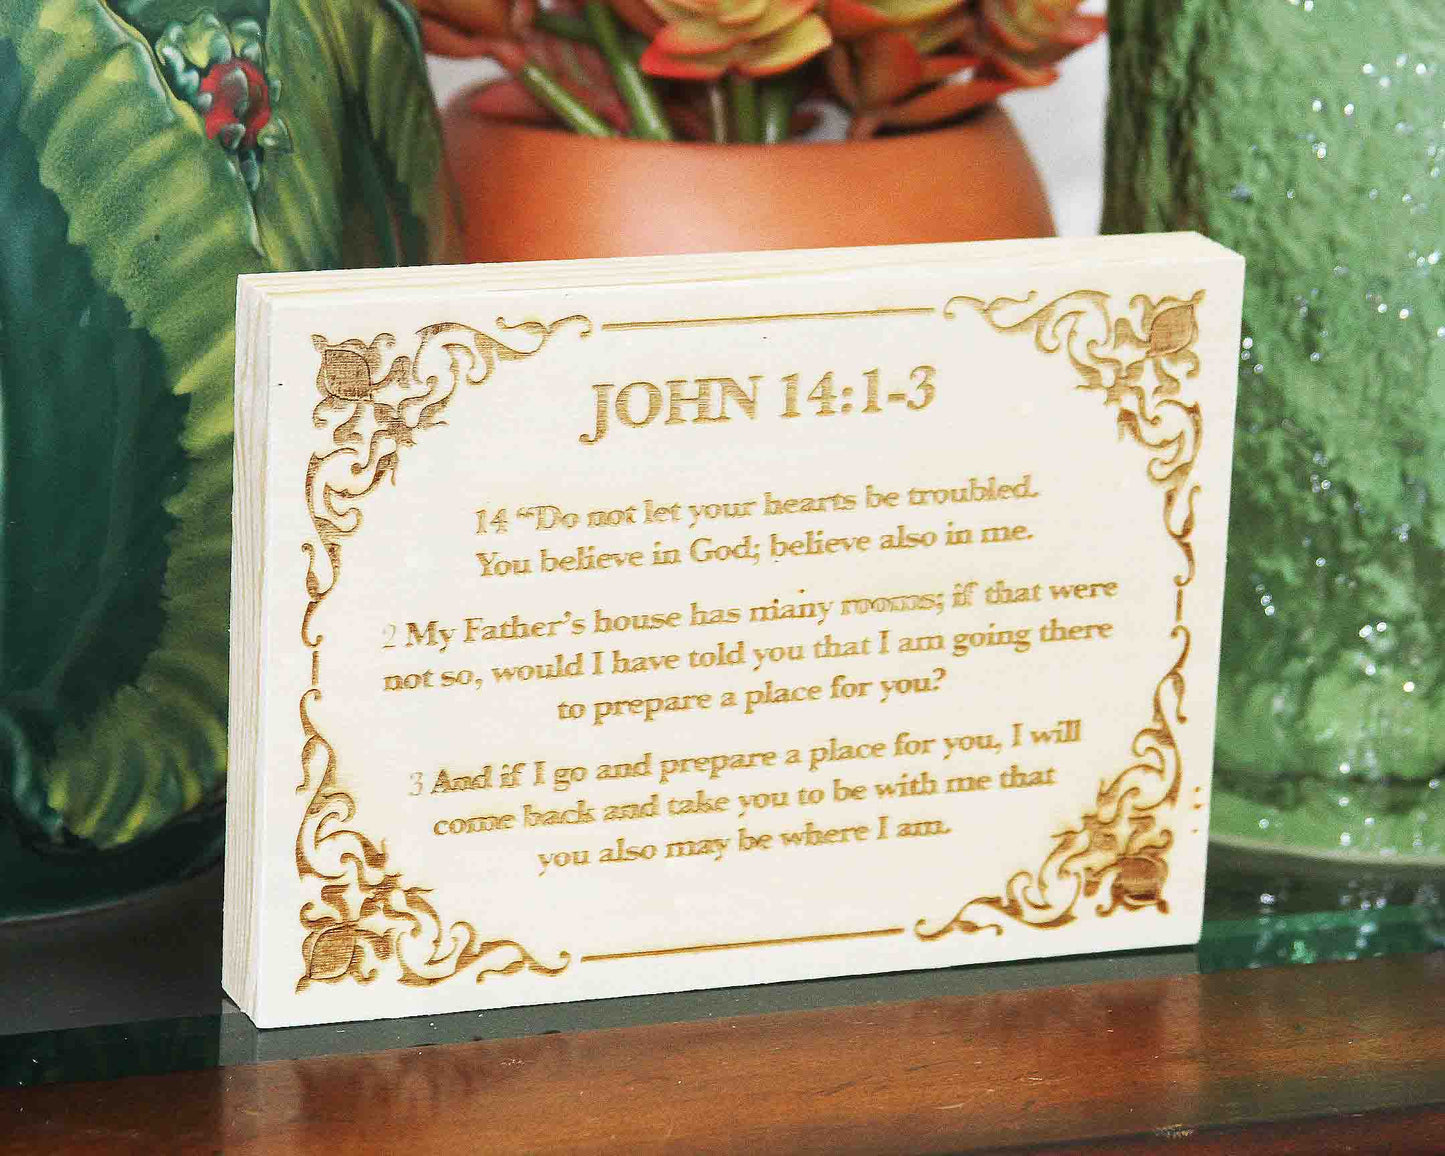 JOHN 14:1-3
14 “Do not let your hearts be troubled.
You believe in God; believe also in me.
2 My Father’s house has many rooms; if that were
not so, would I have told you that I am going there
to prepare a place for you?
3 And if I go and prepare a place for you, I will
come back and take you to be with me that
you also may be where I am.